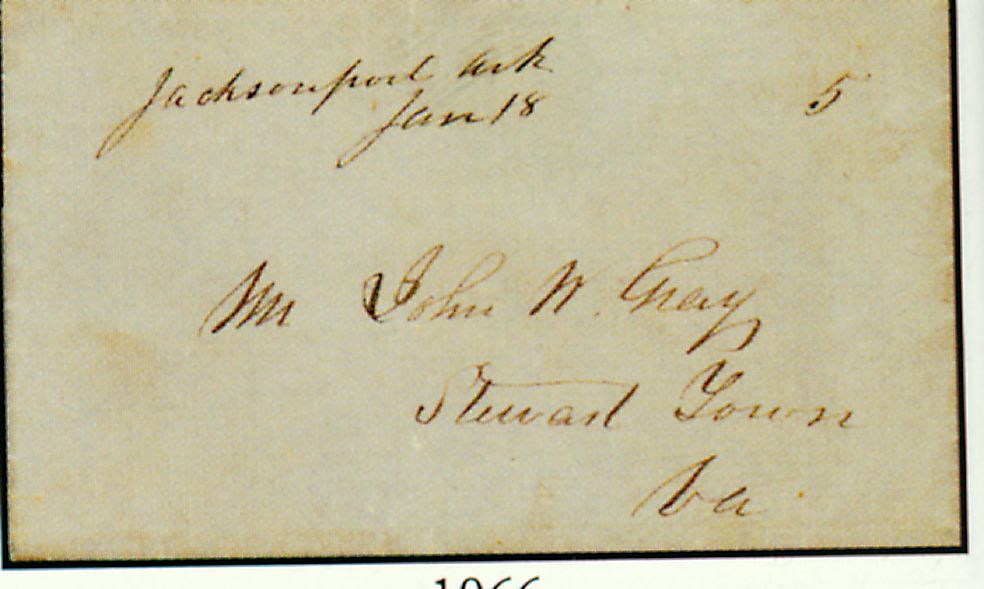 Jacksonport Ark
Jan 18 5
Mr John W. Gray
Stewart Town
Va
1966